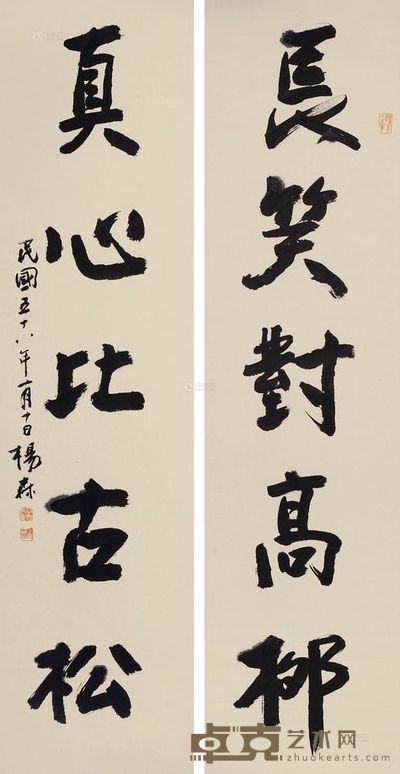 長笑對高柳
真心比古松
民國五十八年二月十日楊森
卓克艺术网
www.zhuokearts.com